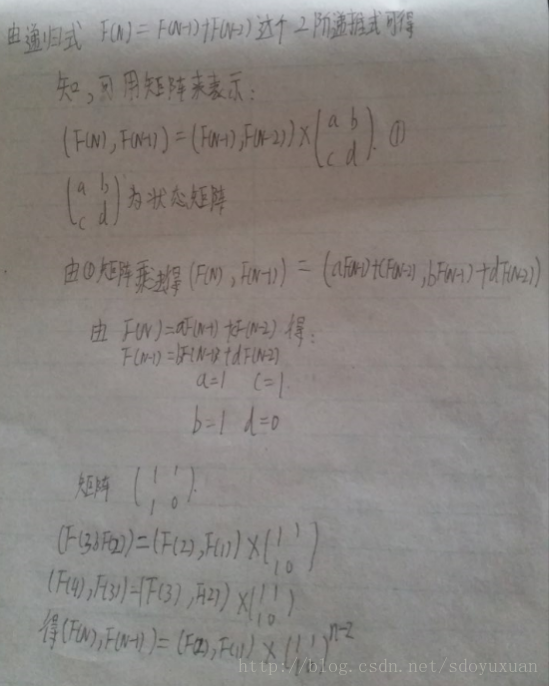 由递归式 F(N) = F(N-1)+F(N-2) 这个2阶递推式可得
知,可用矩阵来表示:
(F(N), F(N-1)) = (F(N-1), F(N-2)) × (a b
c d). ①
(a b
c d) 为状态矩阵
由①矩阵乘法得 (F(N), F(N-1)) = (aF(N-1)+cF(N-2), bF(N-1)+dF(N-2))
由 F(N)=aF(N-1)+cF(N-2) 得:
F(N-1)=bF(N-1)+dF(N-2)
a=1 c=1
b=1 d=0
矩阵 (1 1
1 0).
(F(3),F(2)) = (F(2), F(1)) × (1 1
1 0)
(F(4), F(3)) = (F(3), F(2)) × (1 1
1 0)
得(F(N), F(N-1)) = (F(2), F(1)) × (1 1
1 0)^n-2
http://blog.csdn.net/sdoyuxuan